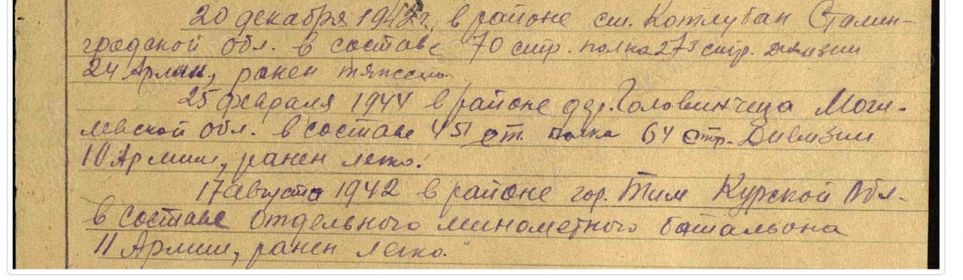 20 декабря 1942 г. в районе ст. Котлубан Сталин-
градской обл. в составе 70 стр. полка 273 стр. дивизии
24 Армии, ранен тяжело.
25 февраля 1944 в районе дер. Головинчеца Моги-
левской обл. в составе 451 ст. полка 64 стр. Дивизии
10 Армии, ранен легко.
17 августа 1942 в районе гор. Тим Курской обл.
в составе отдельного минометного батальона
11 Армии, ранен легко.